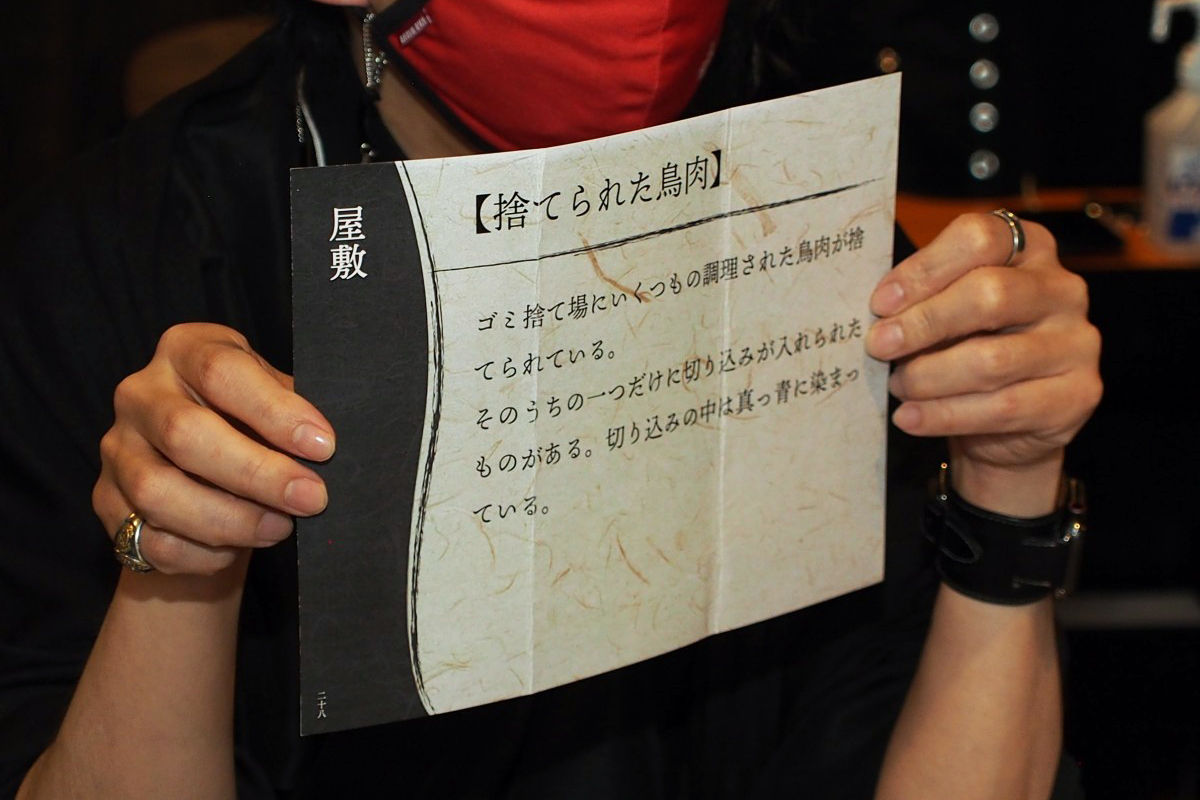 屋敷
【捨てられた鳥肉】
ゴミ捨て場にいくつもの調理された鳥肉が捨
てられている。
そのうちの一つだけに切り込みが入れられた
ものがある。切り込みの中は真っ青に染まっ
ている。
二十八